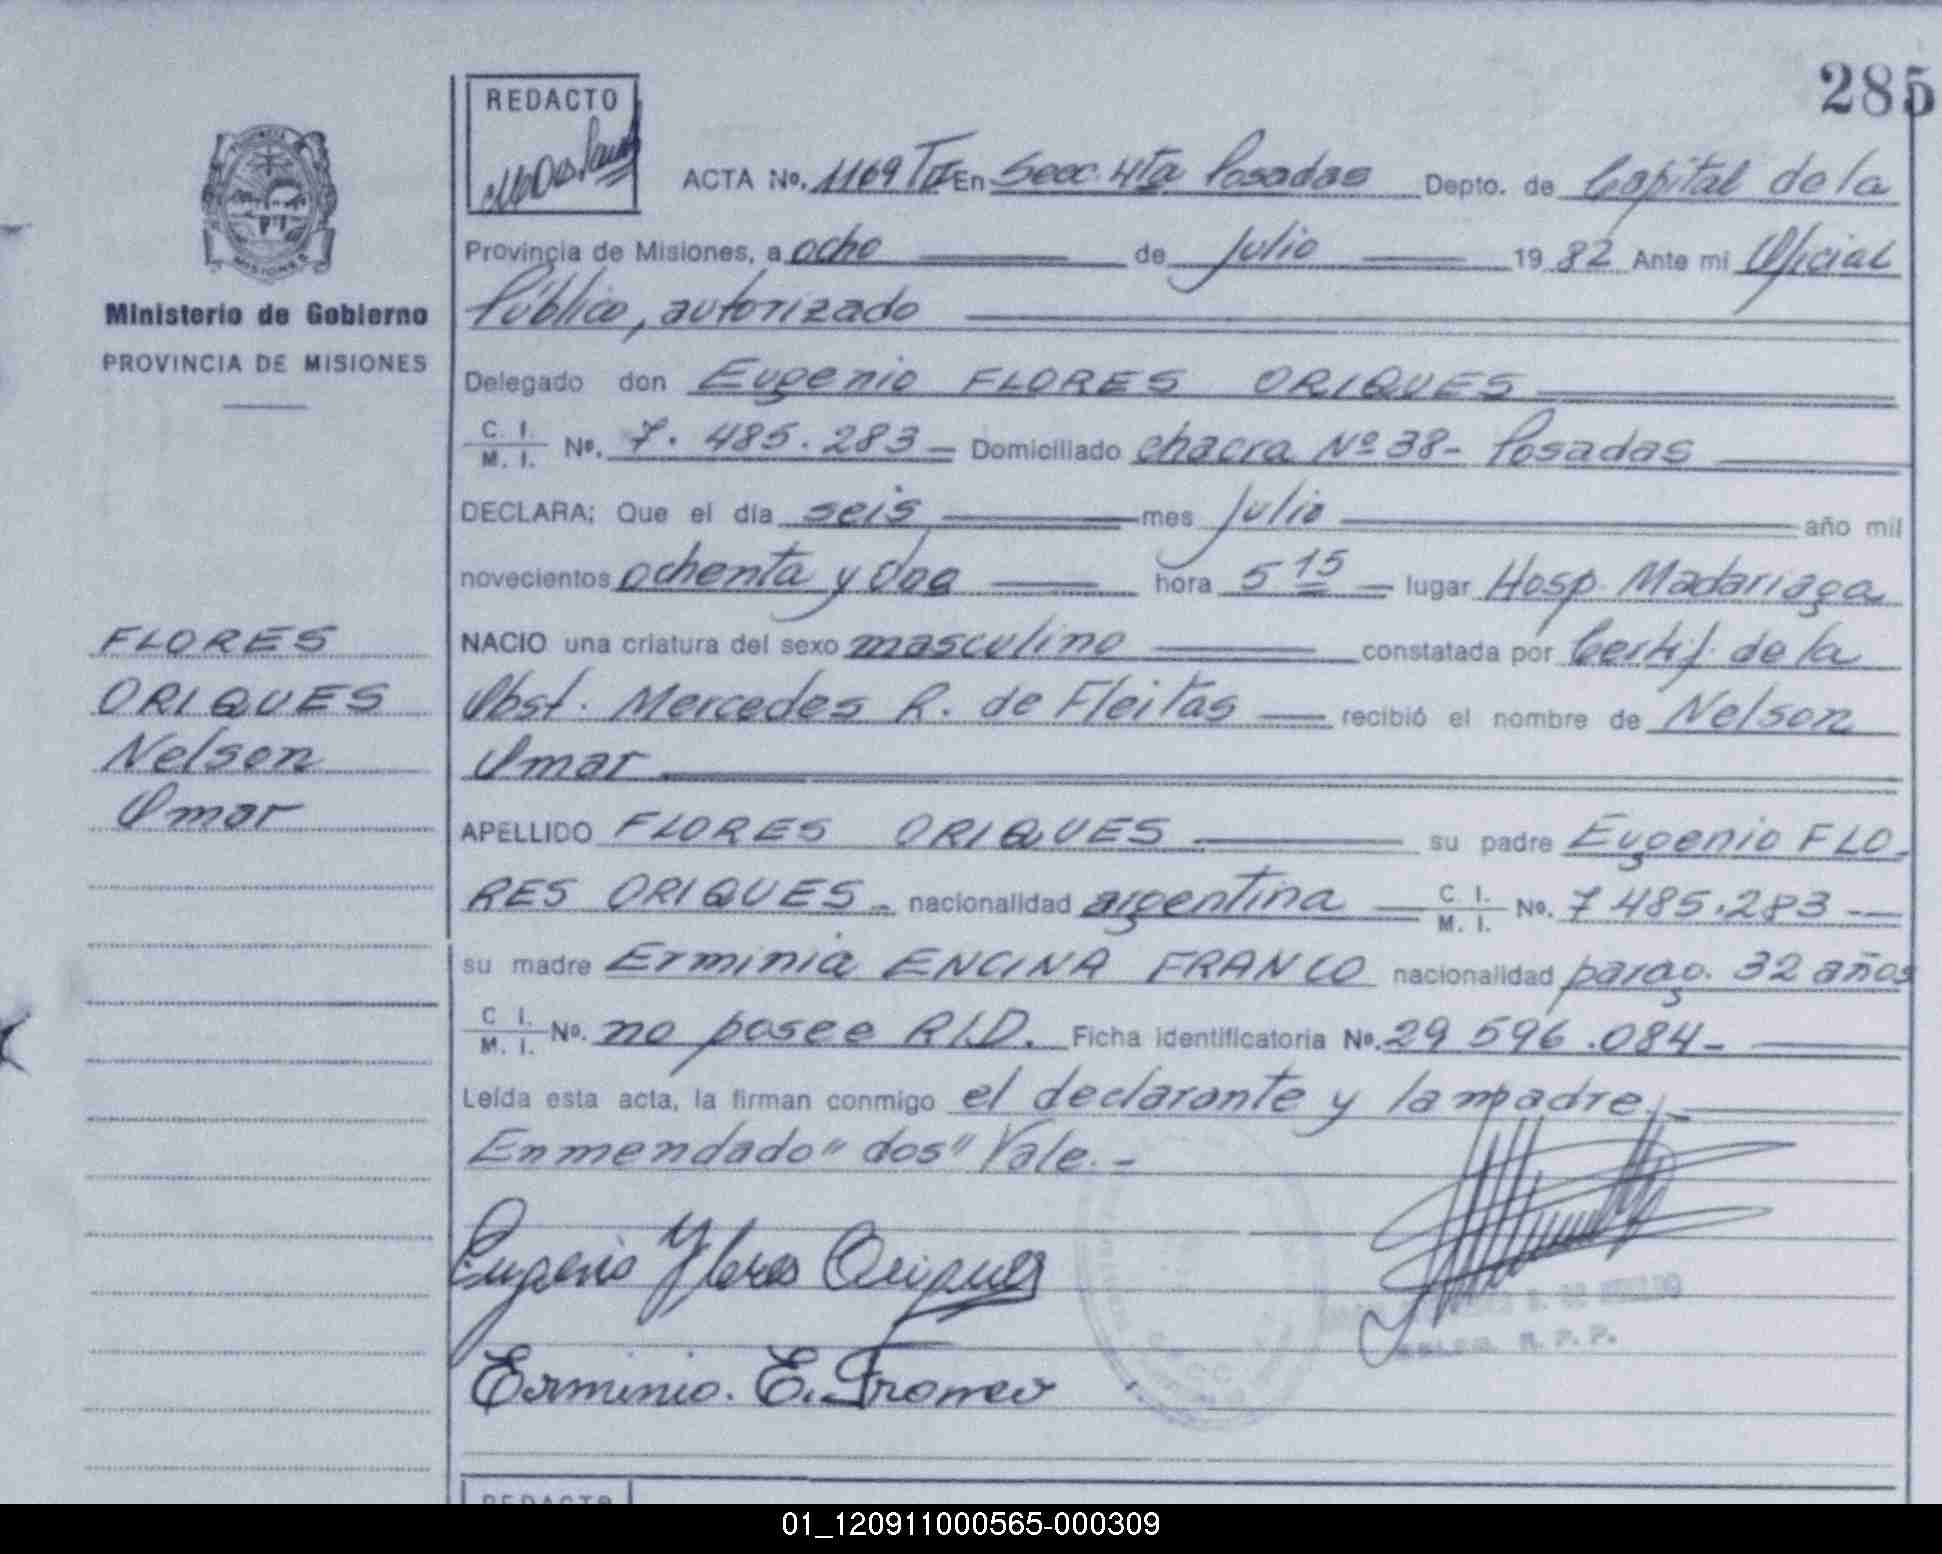 285
REDACTO
ACTA Nº. 1169 Tº I En Secc. 4ta Posadas Depto. de Capital de la
Provincia de Misiones, a ocho de Julio 19 82 Ante mi Oficial
Público, autorizado
MISIONES
Ministerio de Gobierno
PROVINCIA DE MISIONES
Delegado don Eugenio FLORES ORIQUES
C. I. M. I. Nº. 7.485.283 - Domiciliado chacra Nº 38- Posadas
DECLARA: Que el día seis mes Julio año mil
novecientos ochenta y dos hora 5 15 lugar Hosp. Madariaga
NACIO una criatura del sexo masculino constatada por Certif. de la
Obst. Mercedes R. de Fleitas recibió el nombre de Nelson
Omar
FLORES
ORIQUES
Nelson
Omar
APELLIDO FLORES ORIQUES su padre Eugenio FLO-
RES ORIQUES - nacionalidad argentina C. I. M. I. Nº. 7 485.283 -
su madre Erminia ENCINA FRANCO nacionalidad parag. 32 años
C. I. M. I. Nº. no posee R.I.D. Ficha identificatoria Nº. 29 596.084-
Leída esta acta, la firman conmigo el declarante y la madre.-
Enmendado "dos" Vale.-
Eugenio Flores Oriques
Erminio. E. Franco
R. P. P.
REDACTO
01_120911000565-000309